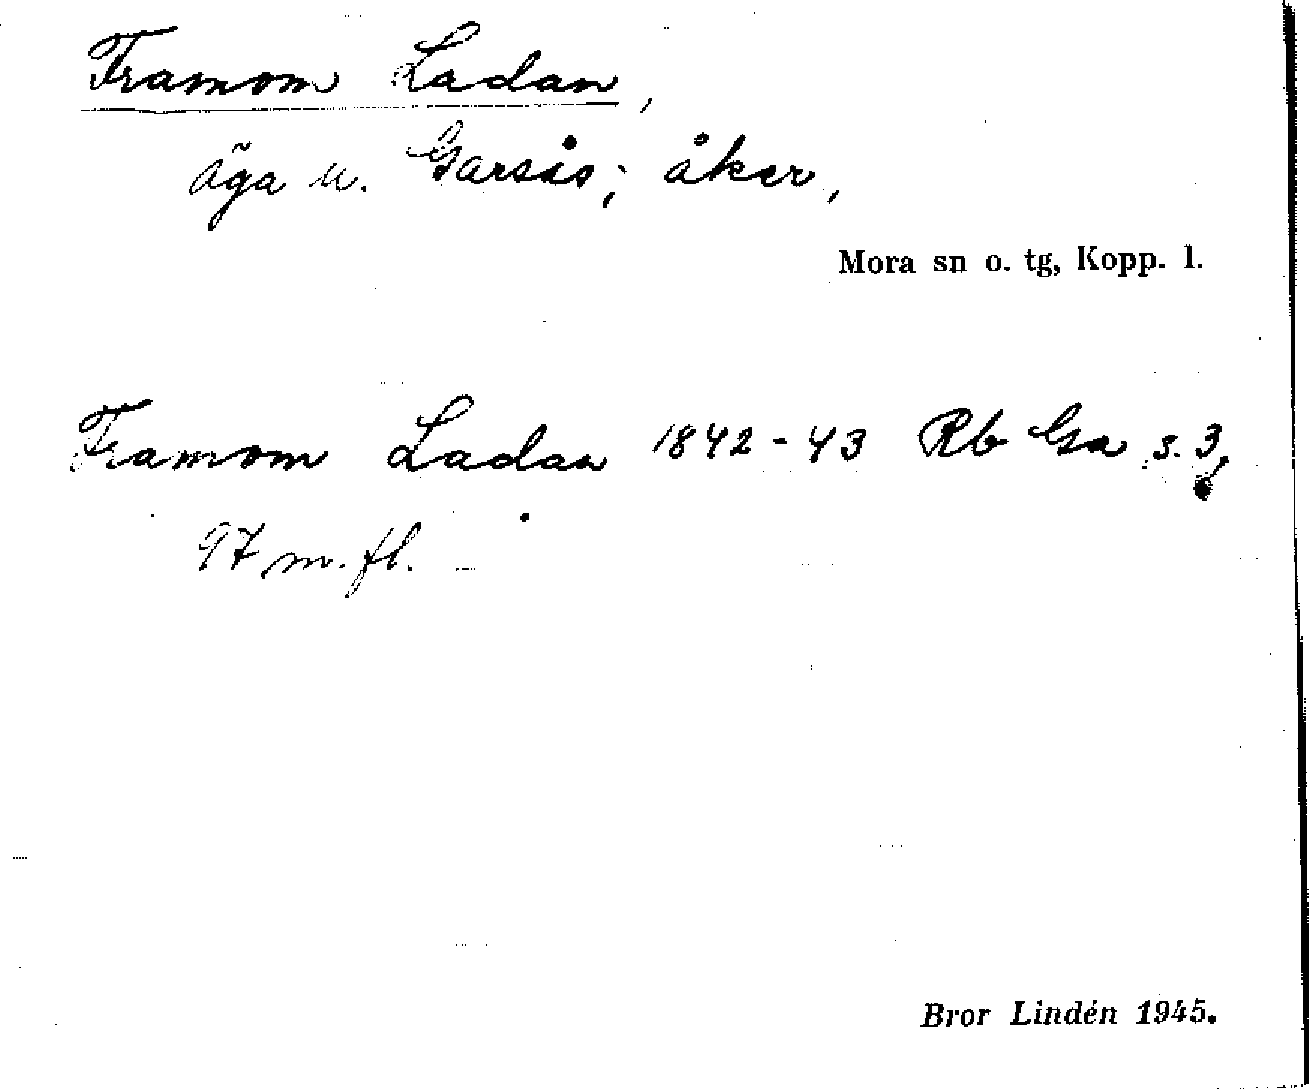 Framom Ladan,
äga u. Garsås; åker,
Mora sn o. tg, Kopp. l.
Framom Ladan 1842-43 Rb Ga s. 3,
97 m. fl.
Bror Lindén 1945.